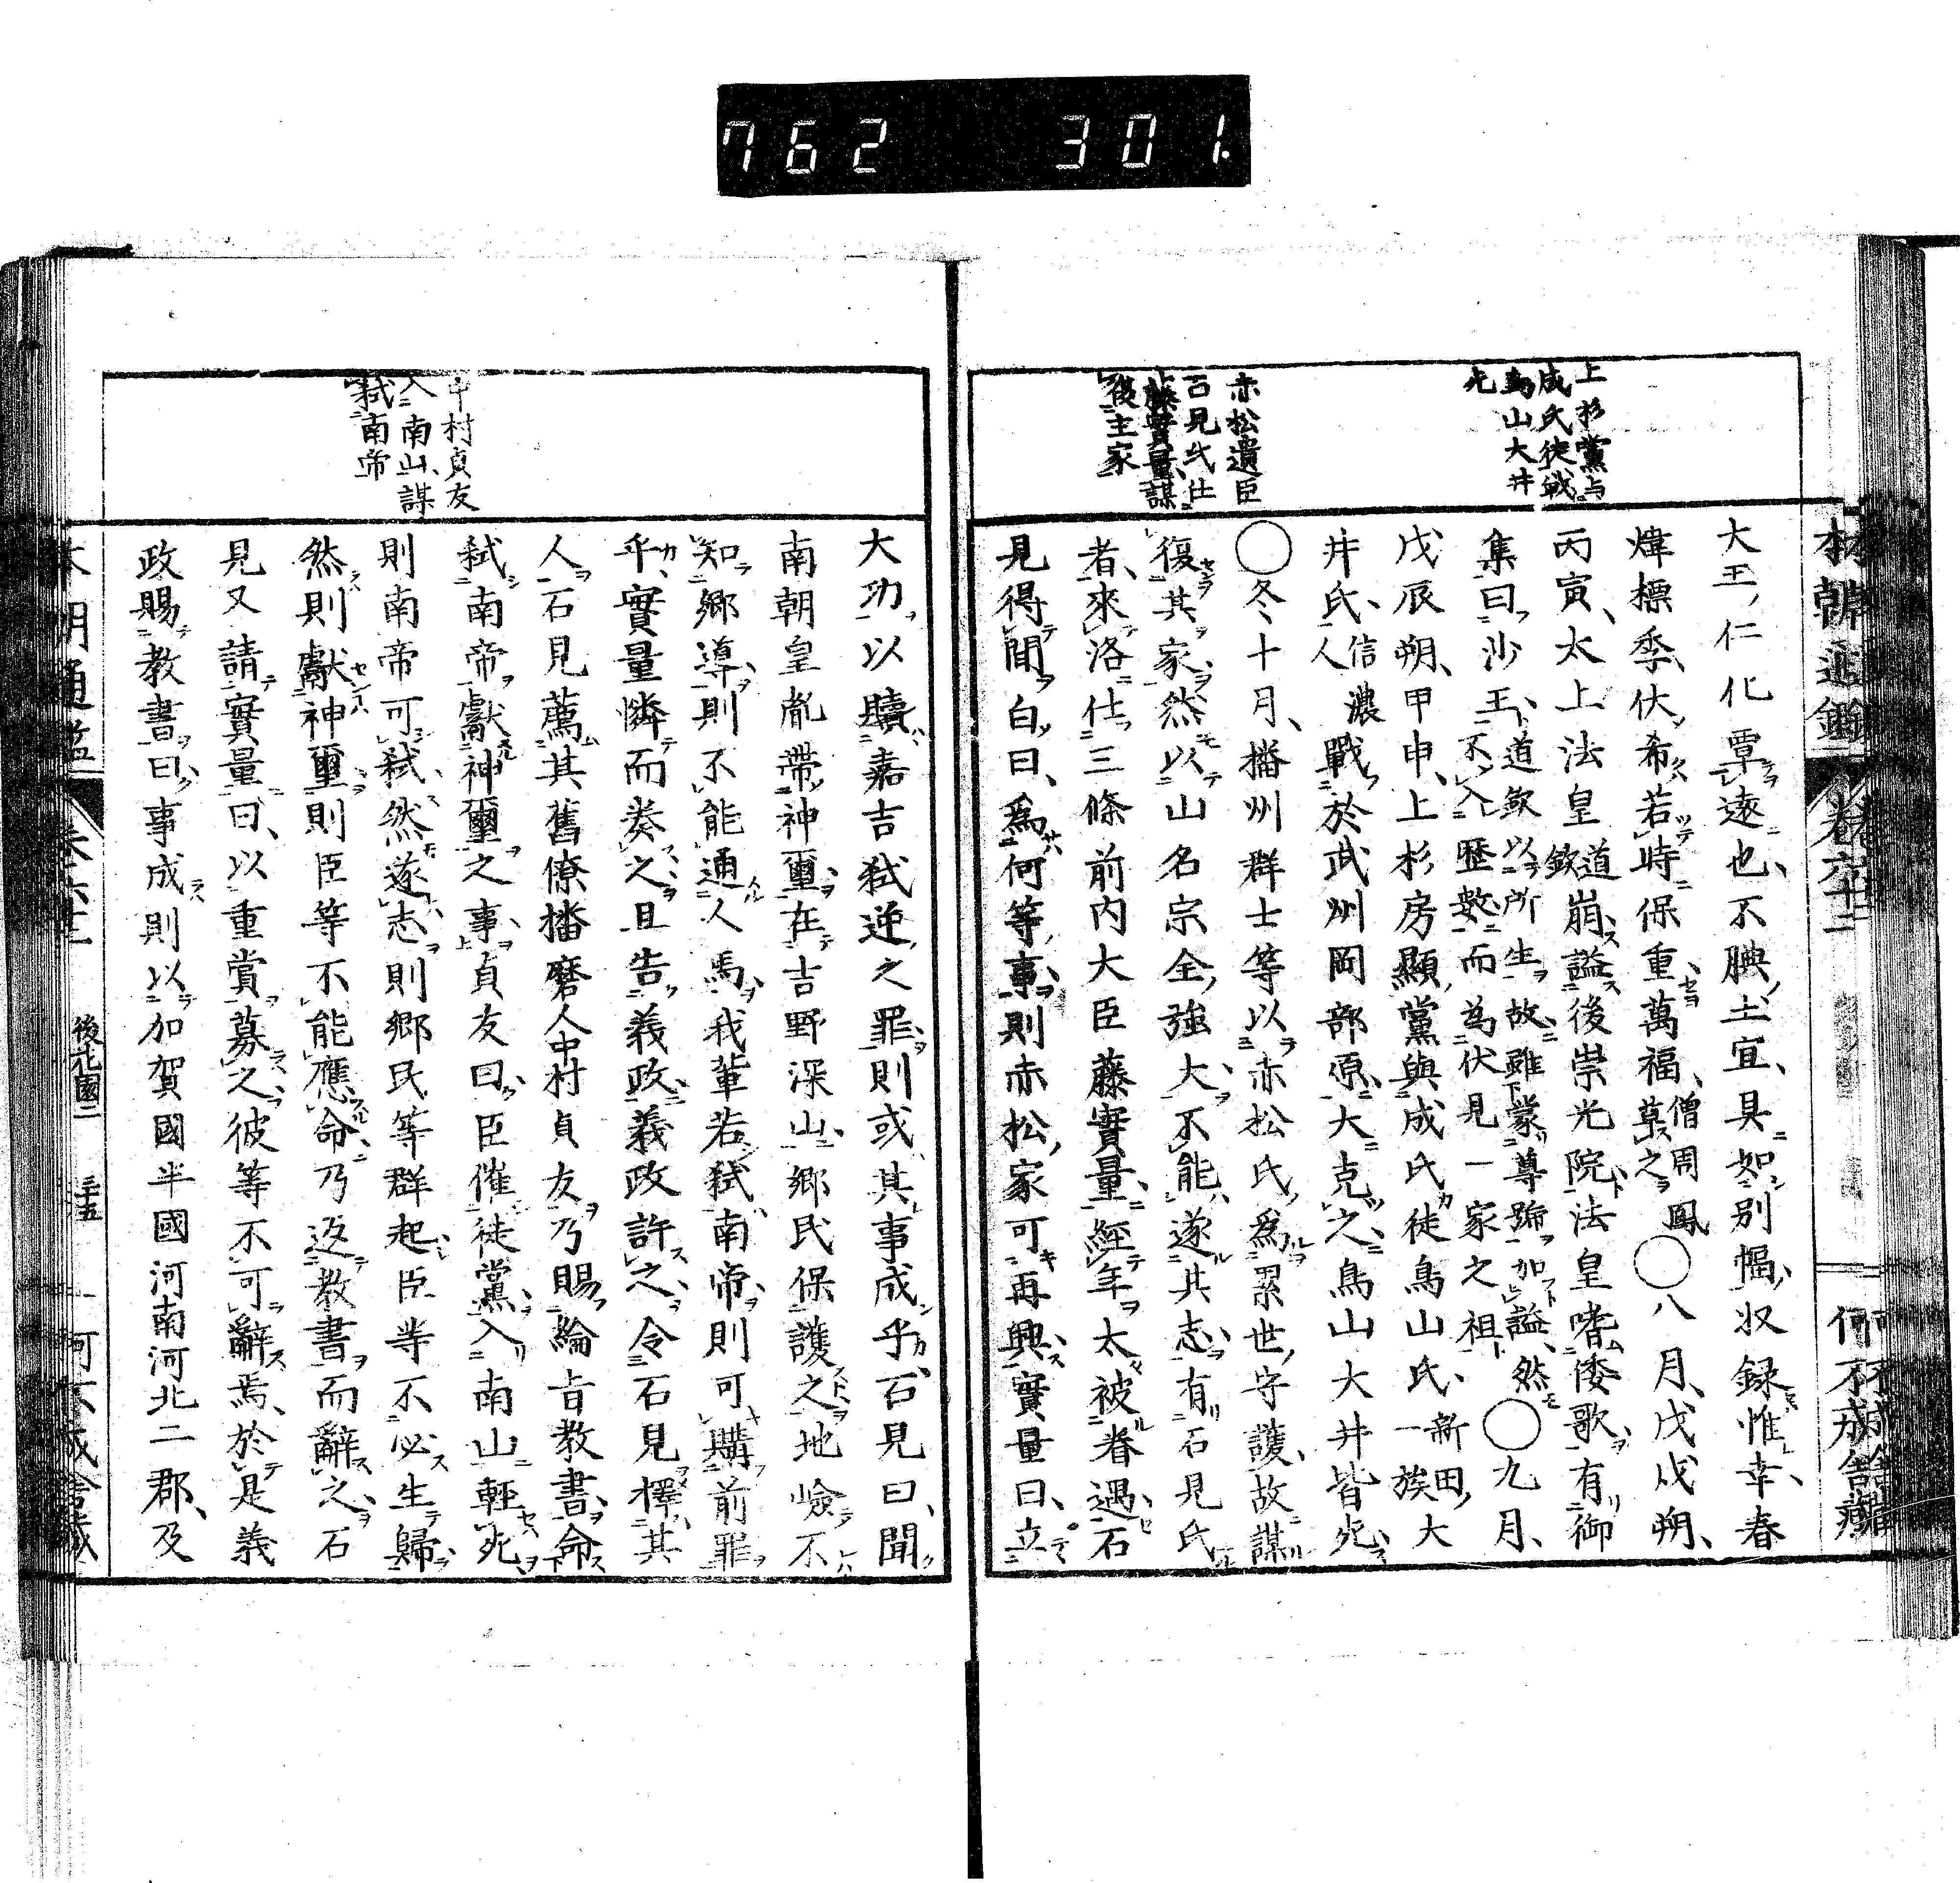 762 301.
上杉黨与
成氏徒戰
鳥山大井
死
赤松遺臣
石見氏仕
藤實量謀
復主家
大王仁化覃遠也不腆土宜具如別幅収録惟幸春
煒標季伏希若時保重萬福僧周鳳草之〇八月戊戌朔
丙寅太上法皇道欽崩謚後崇光院法皇嗜倭歌有御
集曰沙玉道欽以所生故雖蒙尊號加謚然不入歷數而為伏見一家之祖〇九月
戊辰朔甲申上杉房顯黨與成氏徒鳥山氏新田一族大
井氏信濃人戰於武州岡部原大克之鳥山大井皆死
〇冬十月播州群士等以赤松氏爲累世守護故謀
復其家然以山名宗全強大不能遂其志有石見氏
者來洛仕三條前内大臣藤實量經年太被眷遇石
見得間白曰爲何等事則赤松家可再興實量曰立
中村貞友
入南山謀
弑南帝
大功以贖嘉吉弑逆之罪則或其事成乎石見曰聞
南朝皇胤帶神璽在吉野深山鄉民保護之地嶮不
知鄉導則不能通人馬我輩若弑南帝則可購前罪
乎實量憐而奏之且告義政義政許之令石見擇其
人石見薦其舊僚播磨人中村貞友乃賜綸旨教書命
弑南帝獻神璽之事貞友曰臣催徒黨入南山輕死
則南帝可弑然遂志則鄉民等群起臣等不必生歸
然則獻神璽則臣等不能應命乃返教書而辭之石
見又請實量曰以重賞募之彼等不可辭焉於是義
政賜教書曰事成則以加賀國半國河南河北二郡及
後花園二 三十五